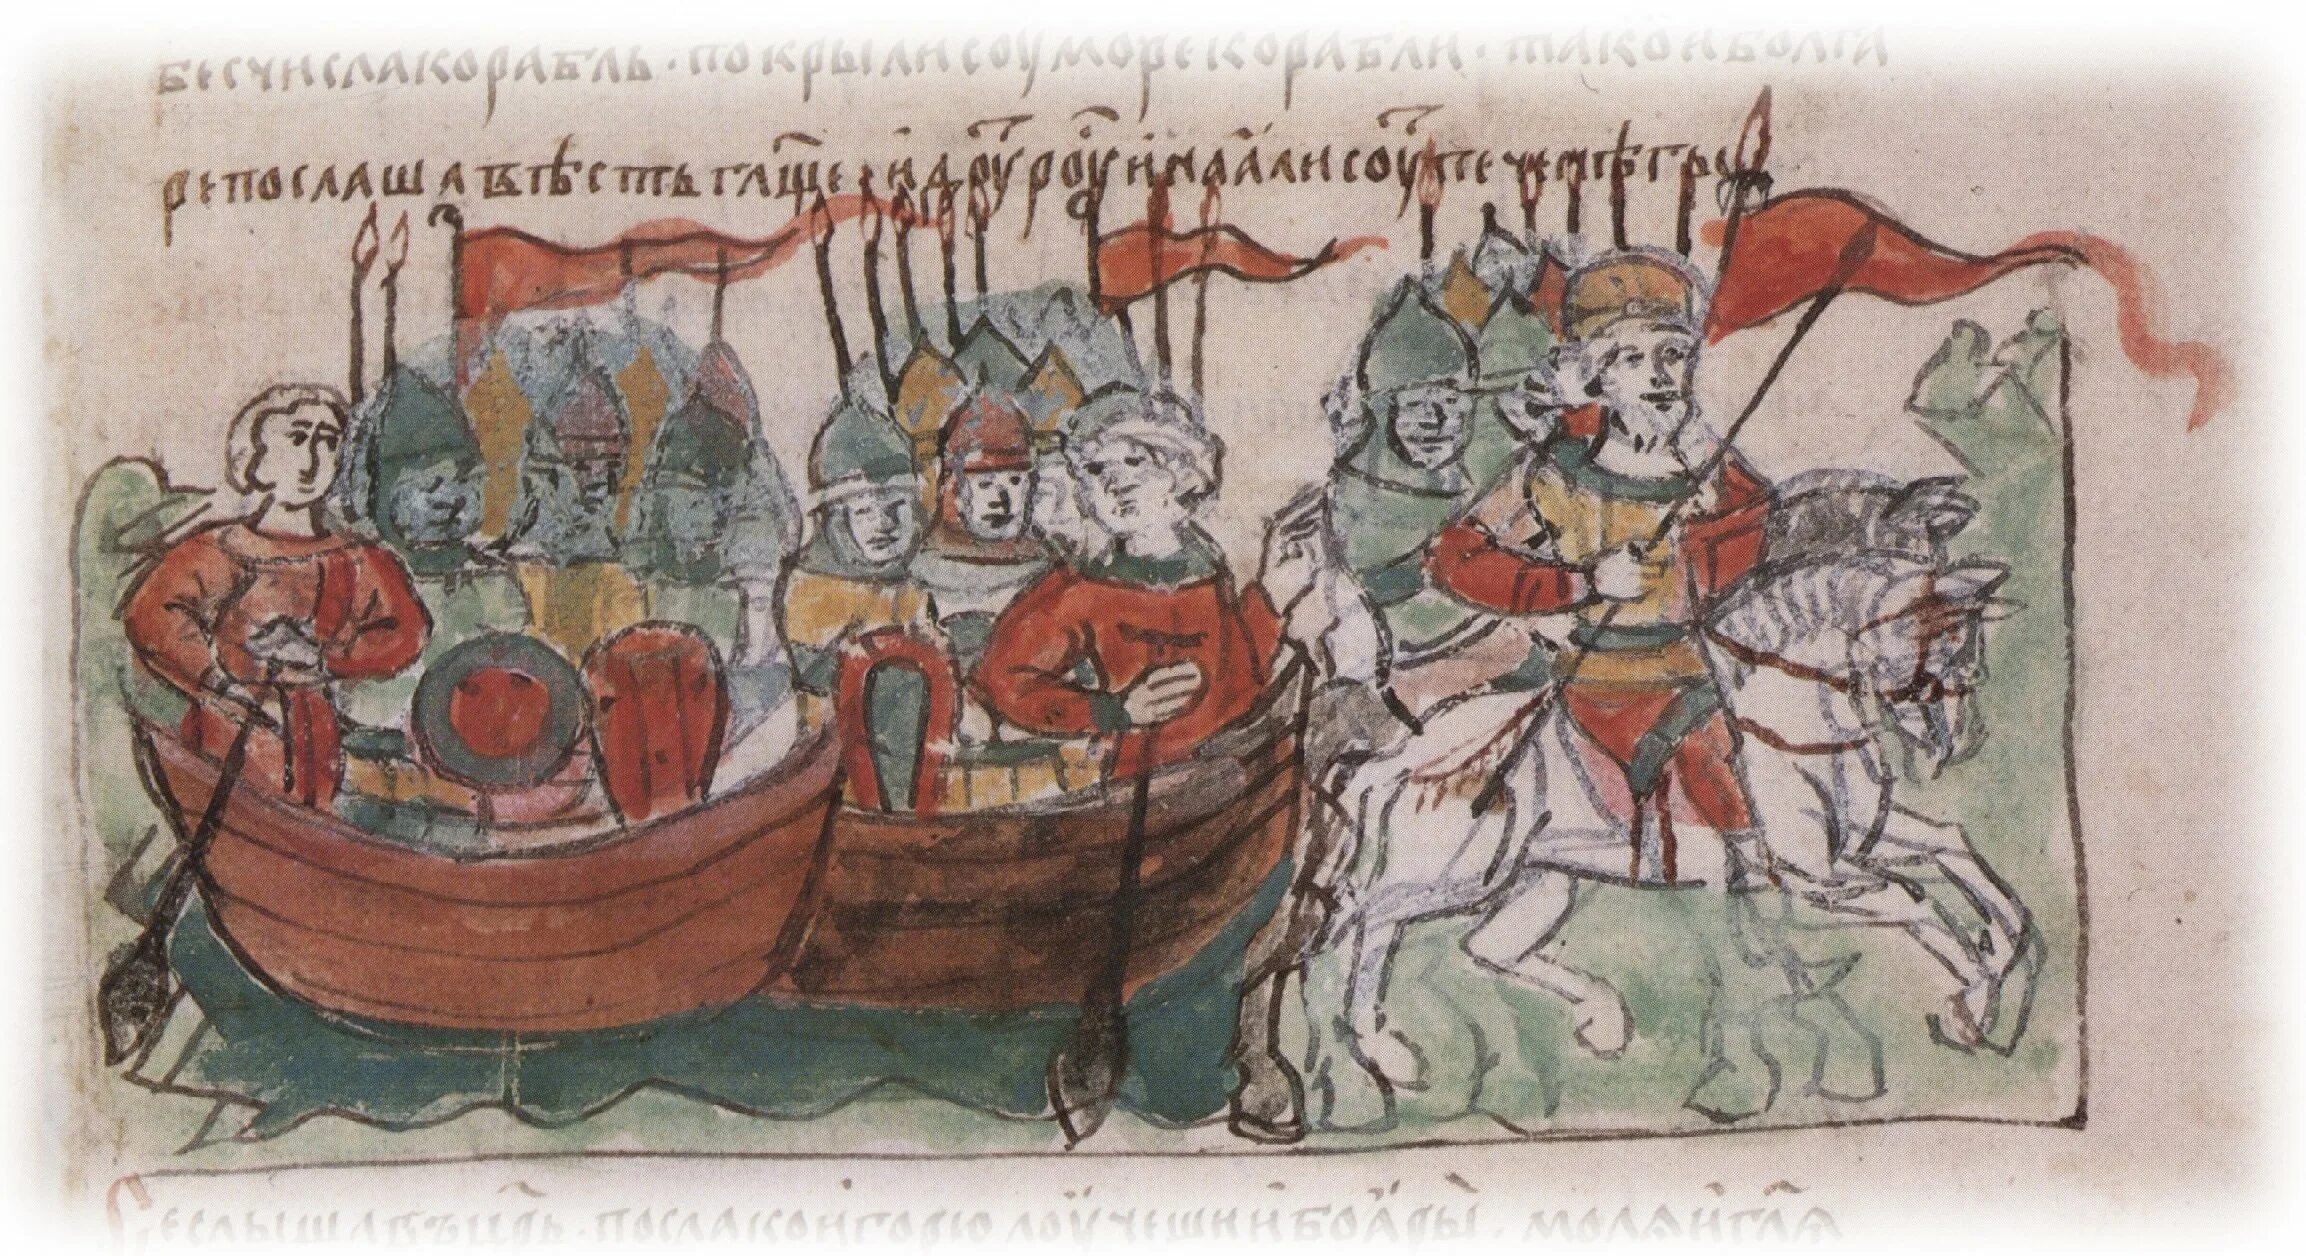 бесчислакорабль · покрылисоуморекорабли · такоиболга
репослашавѣстьглщ҃е · идроуроуинаꙗлисоутьпеченѣгы
Сеслышавъцр҃ь · послакоигорюлоучешиꙗбоꙗры · молꙗигл҃ꙗ